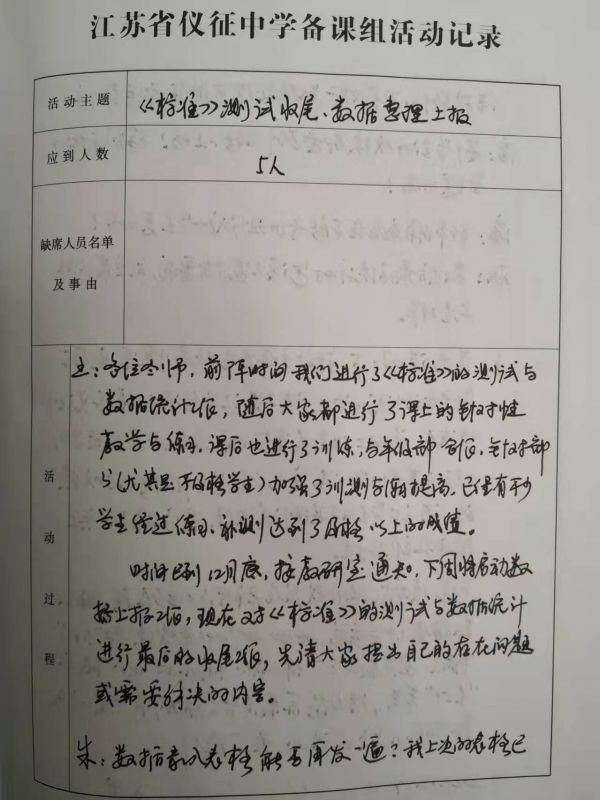 江苏省仪征中学备课组活动记录
活动主题
《标准》测试收尾、数据整理上报
应到人数
5人
缺席人员名单
及事由
活动过程
王：各位老师，前阵时间我们进行了《标准》的测试与
数据统计工作，随后大家都进行了课上的针对性
教学与练习，课后也进行了训练，与年级部合作，针对部
分（尤其是不及格学生）加强了训测与提高，已经有不少
学生经过练习、补测达到了及格以上的成绩。
时间已到12月底，按教研室通知，下周将启动数
据上报工作，现在对《标准》的测试与数据统计
进行最后的收尾工作，先请大家提出自己的存在问题
或需要解决的内容。
朱：数据录入表格能否再发一遍？我上次的表格已